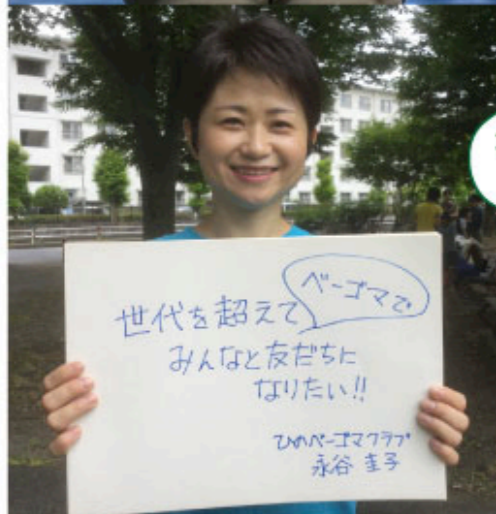 ベーゴマで
世代を超えて
みんなと友だちに
なりたい!!
ひのベーゴマクラブ
永谷 圭子